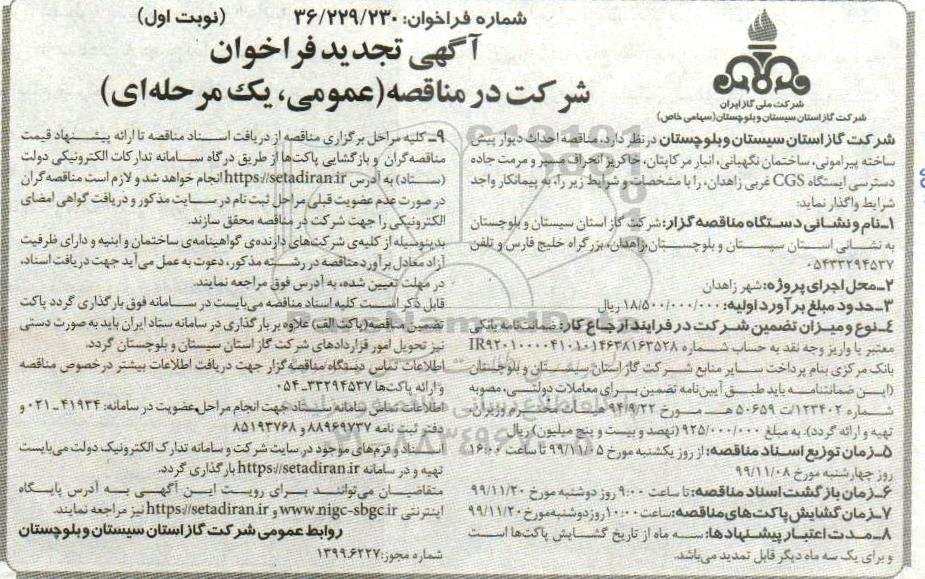 شماره فراخوان: ۳۶/۲۲۹/۲۳۰
(نوبت اول)
آگهی تجدید فراخوان
شرکت در مناقصه (عمومی، یک مرحله‌ای)
شرکت ملی گاز ایران
شرکت گاز استان سیستان و بلوچستان (سهامی خاص)
شرکت گاز استان سیستان و بلوچستان در نظر دارد، مناقصه احداث دیوار پیش
ساخته پیرامونی، ساختمان نگهبانی، انبار مرکاپتان، خاکریز انحراف مسیر و مرمت جاده
دسترسی ایستگاه CGS غربی زاهدان، را با مشخصات و شرایط زیر را، به پیمانکار واجد
شرایط واگذار نماید:
۱ـ نام و نشانی دستگاه مناقصه گزار: شرکت گاز استان سیستان و بلوچستان
به نشانی استان سیستان و بلوچستان، زاهدان، بزرگراه خلیج فارس و تلفن
۰۵۴۳۳۲۹۴۵۳۷
۲ـ محل اجرای پروژه: شهر زاهدان
۳ـ حدود مبلغ برآورد اولیه: ۱۸/۵۰۰/۰۰۰/۰۰۰ ریال
۴ـ نوع و میزان تضمین شرکت در فرایند ارجاع کار: ضمانت نامه بانکی
معتبر یا واریز وجه نقد به حساب شماره IR۹۲۰۱۰۰۰۰۴۱۰۱۰۱۴۶۳۸۱۶۳۵۲۸
بانک مرکزی بنام پرداخت سایر منابع شرکت گاز استان سیستان و بلوچستان
(این ضمانتنامه باید طبق آیین‌نامه تضمین برای معاملات دولتی، مصوبه
شماره ۱۲۳۴۰۲/ت ۵۰۶۵۹ هـ مورخ ۹۴/۹/۲۲ هیات محترم وزیران
تهیه و ارائه گردد). به مبلغ ۹۲۵/۰۰۰/۰۰۰ (نهصد و بیست و پنج میلیون) ریال
۵ـ زمان توزیع اسناد مناقصه: از روز یکشنبه مورخ ۹۹/۱۱/۰۵ تا ساعت ۱۶:۰۰
روز چهارشنبه مورخ ۹۹/۱۱/۰۸
۶ـ زمان بازگشت اسناد مناقصه: تا ساعت ۹:۰۰ روز دوشنبه مورخ ۹۹/۱۱/۲۰
۷ـ زمان گشایش پاکت های مناقصه: ساعت ۱۰:۰۰ روز دوشنبه مورخ ۹۹/۱۱/۲۰
۸ـ مدت اعتبار پیشنهادها: سه ماه از تاریخ گشایش پاکت‌ها است
و برای یک سه ماه دیگر قابل تمدید می‌باشد.
۹ـ کلیه مراحل برگزاری مناقصه از دریافت اسناد مناقصه تا ارائه پیشنهاد قیمت
مناقصه گران و بازگشایی پاکت‌ها از طریق درگاه سامانه تدارکات الکترونیکی دولت
(ستاد) به آدرس https://setadiran.ir انجام خواهد شد و لازم است مناقصه گران
در صورت عدم عضویت قبلی مراحل ثبت نام در سایت مذکور و دریافت گواهی امضای
الکترونیکی را جهت شرکت در مناقصه محقق سازند.
بدینوسیله از کلیه‌ی شرکت‌های دارنده‌ی گواهینامه‌ی ساختمان و ابنیه و دارای ظرفیت
آزاد معادل برآورد مناقصه در رشته مذکور، دعوت به عمل می‌آید جهت دریافت اسناد،
در مهلت تعیین شده، به آدرس فوق مراجعه نمایند.
قابل ذکر است کلیه اسناد مناقصه می‌بایست در سامانه فوق بارگذاری گردد پاکت
تضمین مناقصه (پاکت الف) علاوه بر بارگذاری در سامانه ستاد ایران باید به صورت دستی
نیز تحویل امور قراردادهای شرکت گاز استان سیستان و بلوچستان گردد.
اطلاعات تماس دستگاه مناقصه گزار جهت دریافت اطلاعات بیشتر در خصوص مناقصه
و ارائه پاکت‌ها ۳۳۲۹۴۵۳۷ـ۰۵۴
اطلاعات تماس سامانه ستاد جهت انجام مراحل عضویت در سامانه: ۴۱۹۳۴ـ۰۲۱ و
دفتر ثبت نامه ۸۸۹۶۹۷۳۷ و ۸۵۱۹۳۷۶۸
اسناد و فرم‌های موجود در سایت شرکت و سامانه تدارک الکترونیک دولت می‌بایست
تهیه و در سامانه https://setadiran.ir بارگذاری گردد.
متقاضیان می‌توانند برای رویت این آگهی به آدرس پایگاه
اینترنتی www.nigc-sbgc.ir و https://setadiran.ir نیز مراجعه نمایند.
روابط عمومی شرکت گاز استان سیستان و بلوچستان
شماره مجوز: ۱۳۹۹.۶۲۲۷